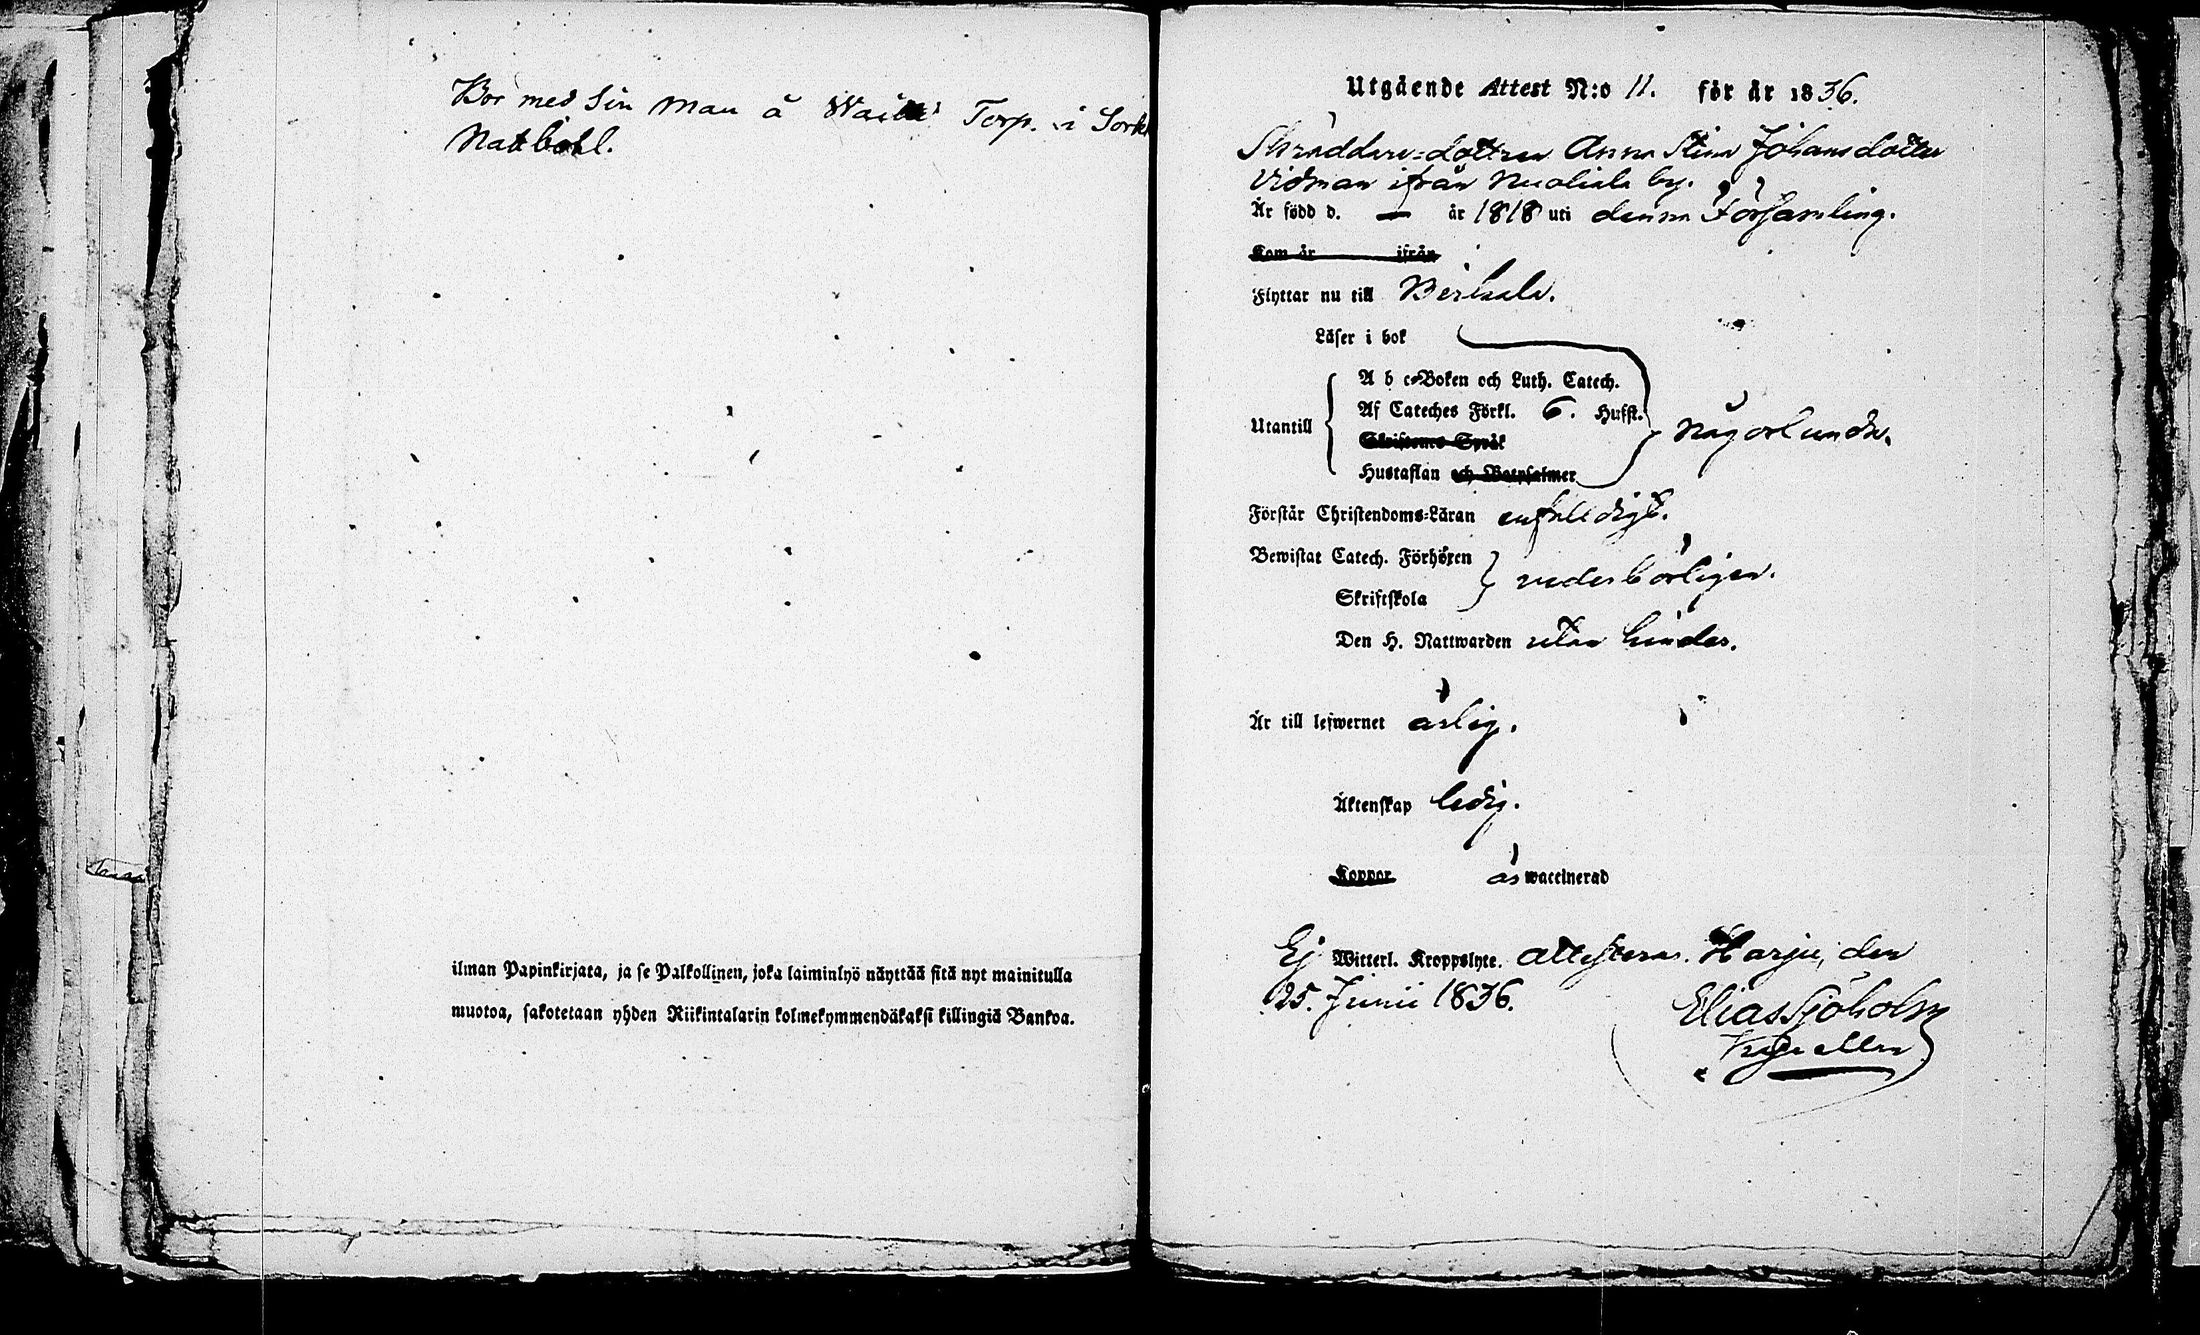 Bor med sin man å Torp. i
Nattbohl.
ilman Papinkirjata, ja se Palkollinen, joka laiminlyö näyttää sitä nyt mainitulla
muotoa, sakotetaan yhden Riikintalarin kolmekymmendäkaksi killingiä Bankoa.
Utgående Attest N:o 11. för år 1836.
Skräddare-dottren Anna Stina Johansdotter
Vidman ifrån Nuoliala by.
Är född d. — år 1818 uti denna Församling.
Kom år ifrån
Flyttar nu till Birkala.
Läser i bok
Utantill
A b c-Boken och Luth. Catech.
Af Cateches Förkl. 6. Hufst.
Skriftenes Språk
Hustaflan och Botpsalmer
någorlunda.
Förstår Christendoms-Läran enfaldigt.
Bewistat Catech. Förhören
Skriftskola
vederbörligen.
Den H. Nattwarden utan hinder.
Är till lefwernet ärlig.
Äktenskap ledig.
Koppor är waccinerad
Ej Witterl. Kroppslyte. attesteras. Harju, den
25. Junii 1836.
Elias Sjöholm